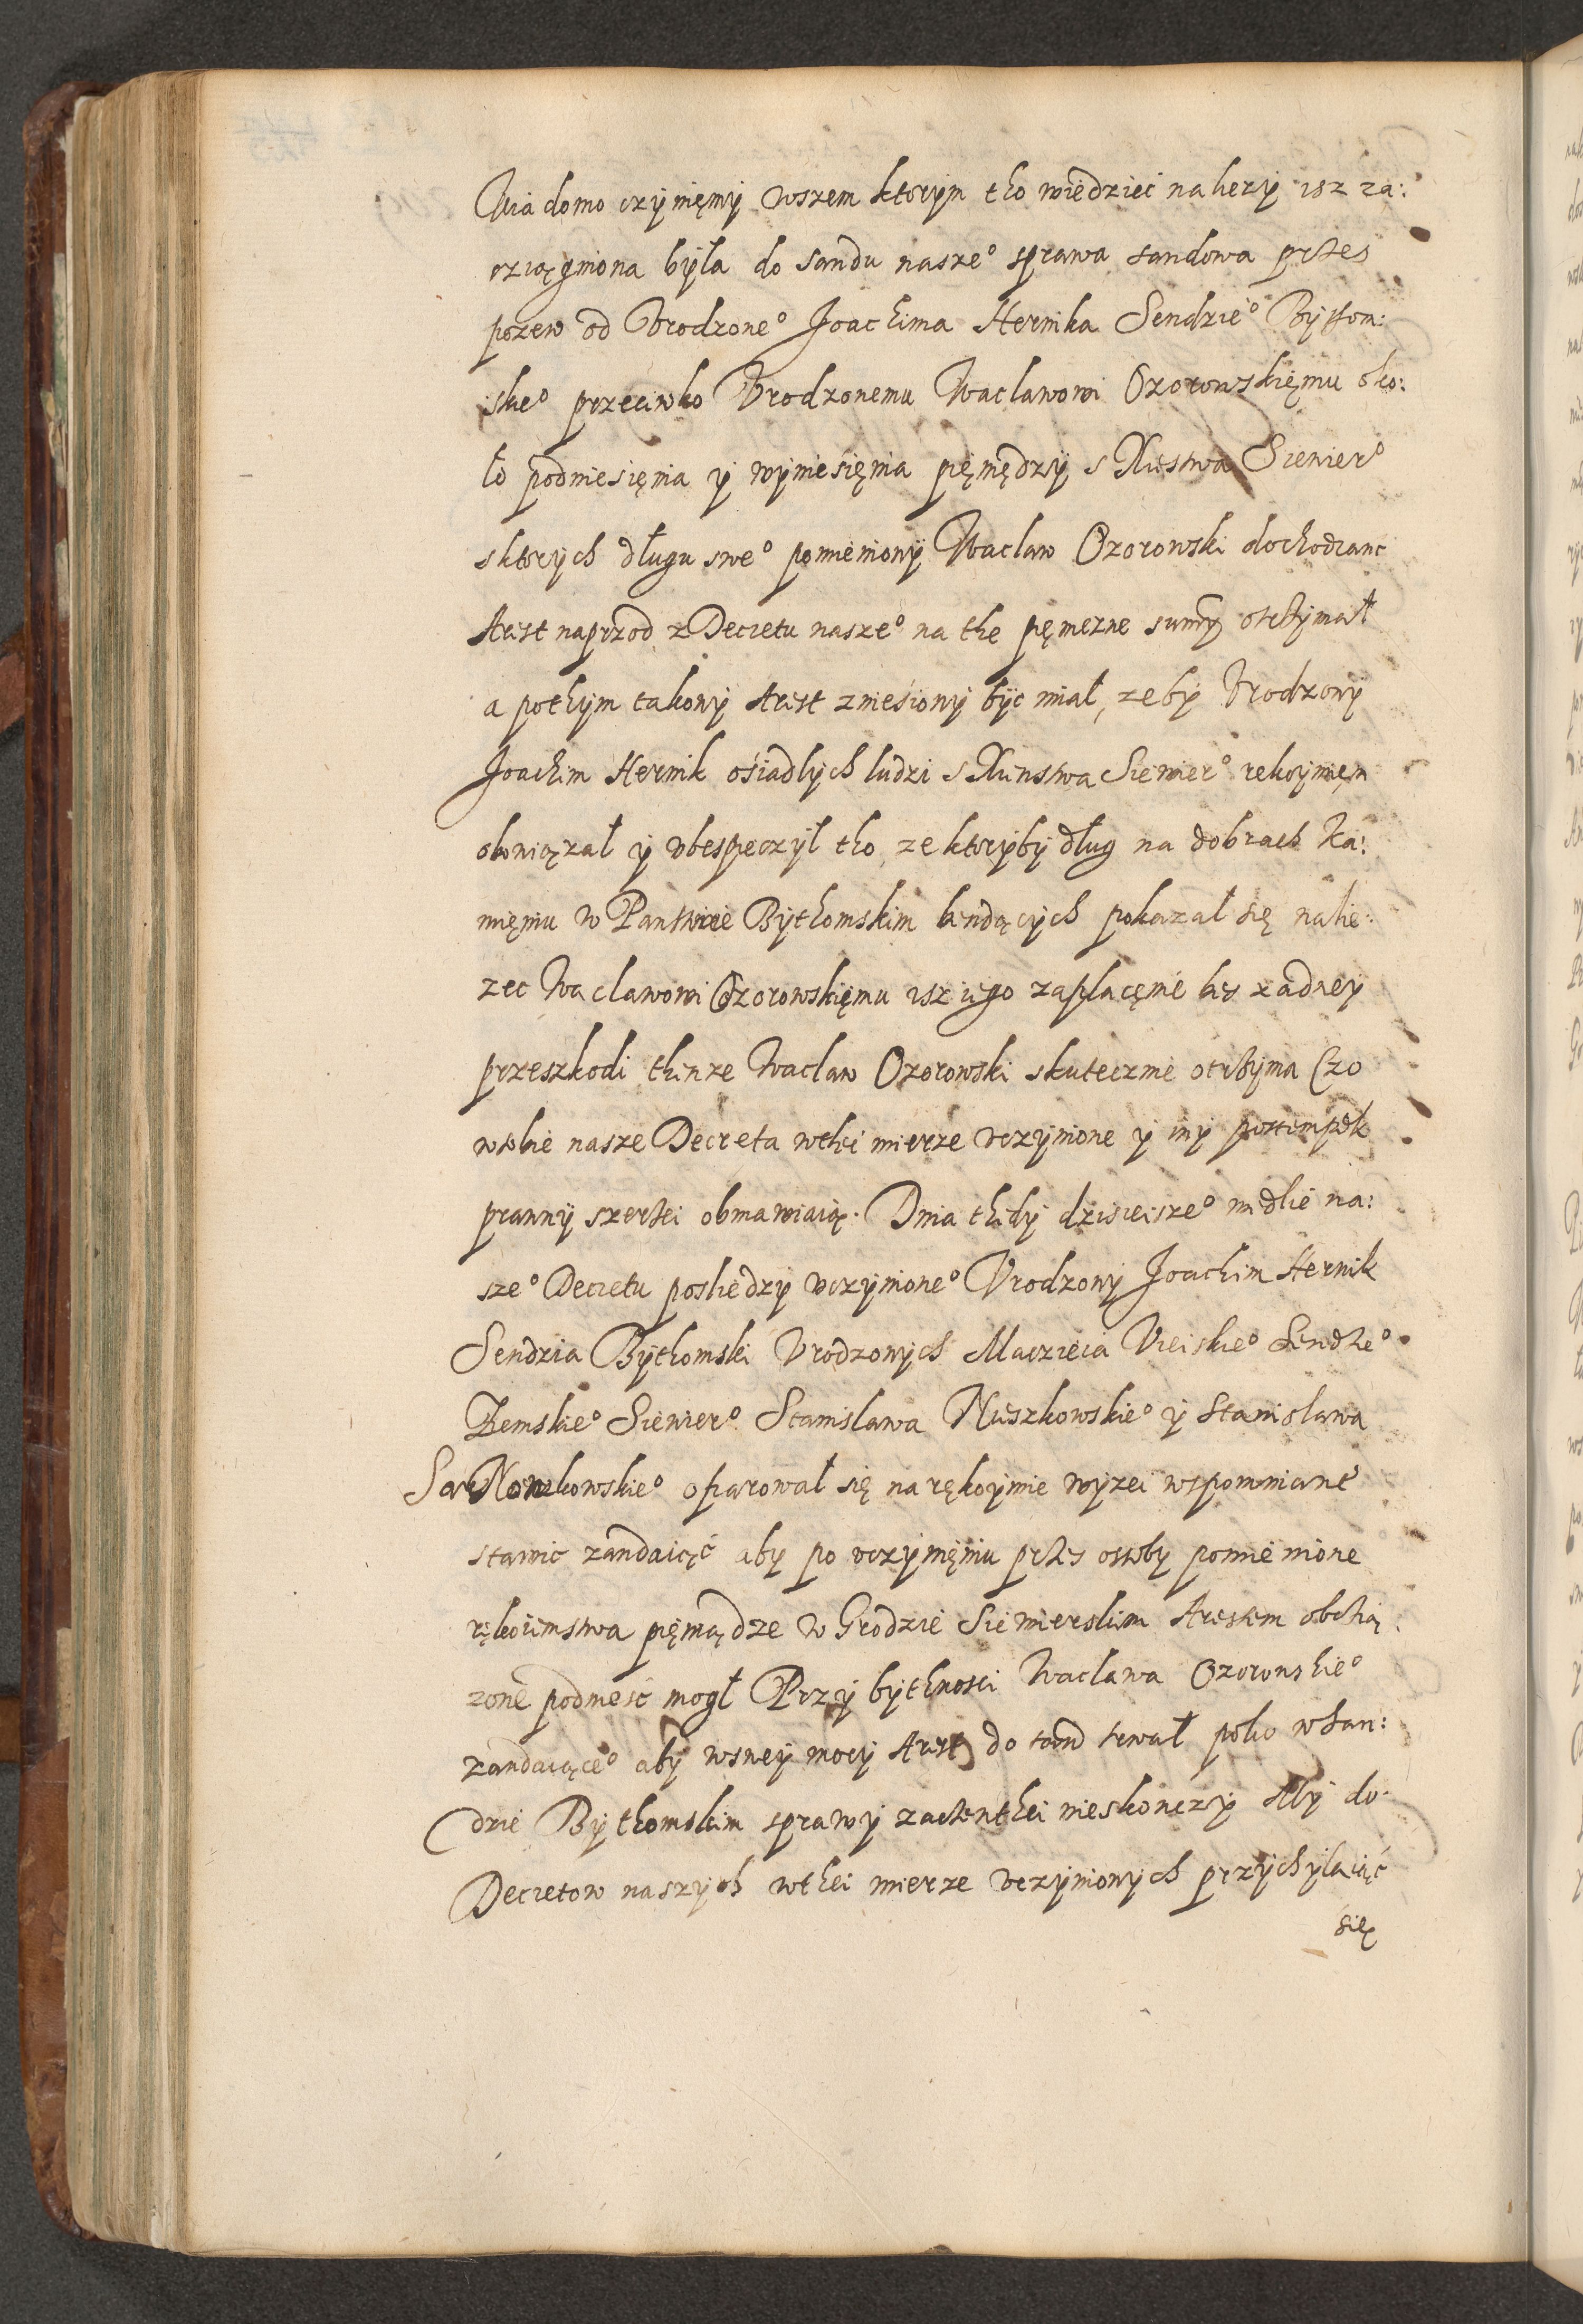 Wiadomo czynięmy wszem ktorym tho wiedzieć nalezy isz za:
cziągniona była do sandu nasze° sprawa sandowa przes
pozew od Vrodzone° Joachima Hernika Sendzie° Bythom:
skie° przeciwko Vrodzonemu Waclawowi Ozorowskięmu oko:
ło podniesięnia y wyniesięnia pięnędzy s Xięstwa Siewier°
sktorych długu swe° pomieniony Waclaw Ozorowski dochodzanc
Arest naprzod z Decretu nasze° na the pęniezne summy otrzymał
a pothym takowy Arest zniesiony być miał, zeby Vrodzony
Joachim Hernik ośiadłych ludzi s Xięnstwa Siewier° rekoymięn
obowiązał y vbespeczył tho, ze ktoryby dług na dobrach Ka:
mięniu w Panstwie Bythomskim bendących pokazał się nalie:
zec Waclawowi Ozorowskięmu isz iego zapłacęnie bes zadney
przeszkodi thenze Waclaw Ozorowski skutecznie otrzyma Czo
wsobie nasze Decreta wthei mierze vczynione y iny postempek
prawny szerzei obmawiaią. Dnia thedy dzisieisze° wedlie na:
sze° Decretu posliedzy vczynione° Vrodzony Joachim Hernik
Sendzia Bythomski Vrodzonych Macziecia Vieiskie° Sendze°
Zemskie° Siewier° Stanislawa Nieszkowskie° y Stanislawa
Sar Nowkowskie° ofiarował się na rękoymie wyzei wspomniane
stawic zandaiąć aby po vczynięniu przes ossoby pomienione
rękoiemstwa pięniądze w Grodzie Siewierskim Arestem obcią
zone podnieść mogł Przy bythnosci Waclawa Ozorowskie°
zandaiące° aby wswey mocy Arest do tand trwał poko wSan:
dzie Bythomskim sprawy zaczenthei nieskonczy Aby do
Decretow naszych wthei mierze vczynionych przychylaiąć
się